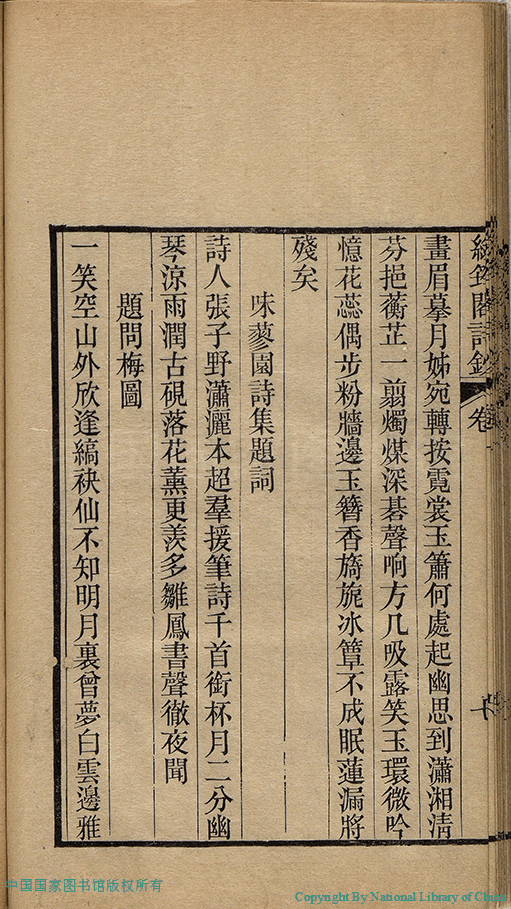 畫眉摹月姊宛轉按霓裳玉簫何處起幽思到瀟湘清
芬挹蘅芷一翦燭煤深碁聲响方几吸露笑玉環微吟
憶花蕊偶步粉牆邊玉簪香旖旎冰簟不成眠蓮漏將
殘矣
味蓼園詩集題詞
詩人張子野瀟灑本超羣援筆詩千首銜杯月二分幽
琴涼雨潤古硯落花薰更羨多雛鳳書聲徹夜聞
題問梅圖
一笑空山外欣逢縞袂仙不知明月裏曾夢白雲邊雅
中国国家图书馆版权所有
Copyright By National Library of China